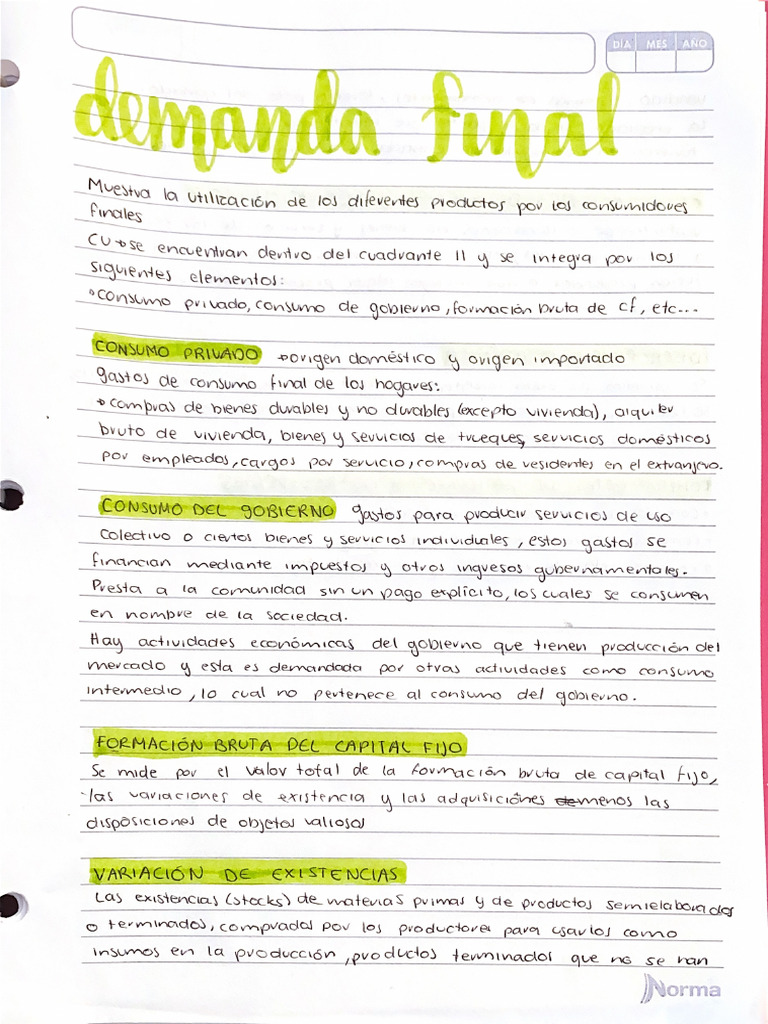 DÍA MES AÑO
demanda final
Muestra la utilización de los diferentes productos por los consumidores
finales
CU→se encuentran dentro del cuadrante II y se integra por los
siguientes elementos:
°Consumo privado, consumo de gobierno, formación bruta de cf, etc...
CONSUMO PRIVADO →origen doméstico y origen importado
gastos de consumo final de los hogares:
→compras de bienes durables y no durables (excepto vivienda), alquiler
bruto de vivienda, bienes y servicios de trueque, servicios domésticos
por empleados, cargos por servicio, compras de residentes en el extranjero.
CONSUMO DEL GOBIERNO gastos para producir servicios de uso
colectivo o ciertos bienes y servicios individuales, estos gastos se
financian mediante impuestos y otros ingresos gubernamentales.
Presta a la comunidad sin un pago explícito, los cuales se consumen
en nombre de la sociedad.
Hay actividades económicas del gobierno que tienen producción del
mercado y esta es demandada por otras actividades como consumo
intermedio, lo cual no pertenece al consumo del gobierno.
FORMACIÓN BRUTA DEL CAPITAL FIJO
Se mide por el valor total de la formación bruta de capital fijo,
las variaciones de existencia y las adquisiciones de menos las
disposiciones de objetos valiosos
VARIACIÓN DE EXISTENCIAS
Las existencias (stocks) de materias primas y de productos semielaborados
o terminados, comprados por los productores para usarlos como
insumos en la producción, productos terminados que no se han
Norma